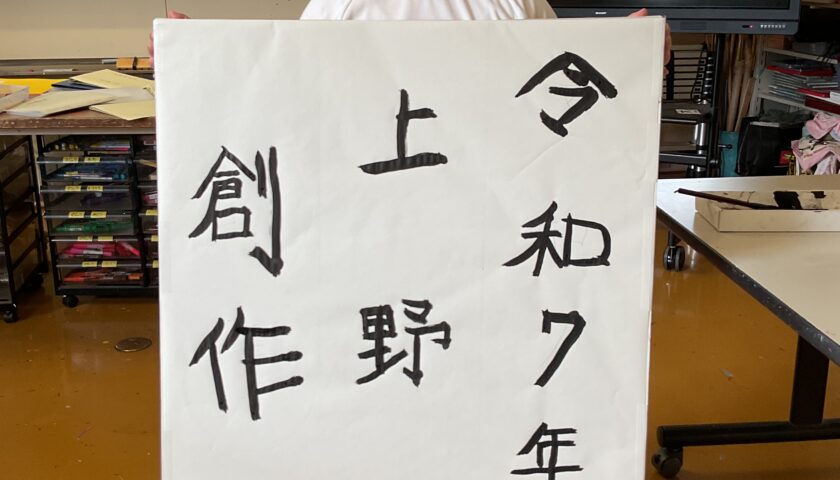 令和7年
上野
創作